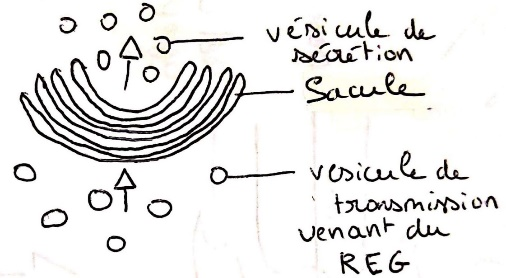 vésicule de
sécrétion
Sacule
vesicule de
transmission
venant du
REG